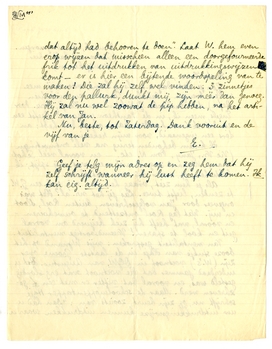 dat altijd had behooren te doen." Laat W. hem even
erop wijzen dat misschien alleen een doorgefourneerde
tot het uitdrukken van uitdrukkingswijzen
komt – er is hier een bijtende woordspeling van te
maken! Die zal hij zelf wel vinden. 3 zinnetjes
voor den halluru, dunkt mij, zijn meer dan genoeg.
Hij zal nu wel zoowat de pip hebben, na het arti-
kel van Jan.
Nu, beste, tot Zaterdag. Dank vooruit en de
vijf van je
E.
Geef je telg mijn adres op en zeg hem dat hij
zelf schrijft wanneer hij lust heeft te komen. Ik
kan eig. altijd.